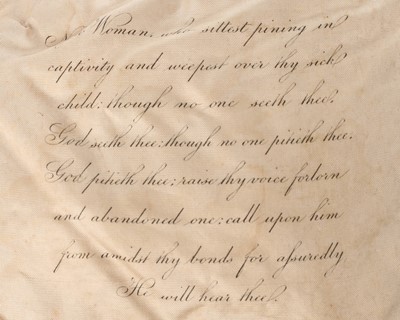 Woman, who sittest pining in
captivity and weepest over thy sick
child: though no one seeth thee.
God seeth thee: though no one pitieth thee.
God pitieth thee: raise thy voice forlorn
and abandoned one: call upon him
from amidst thy bonds for aſsuredly
He will hear thee.